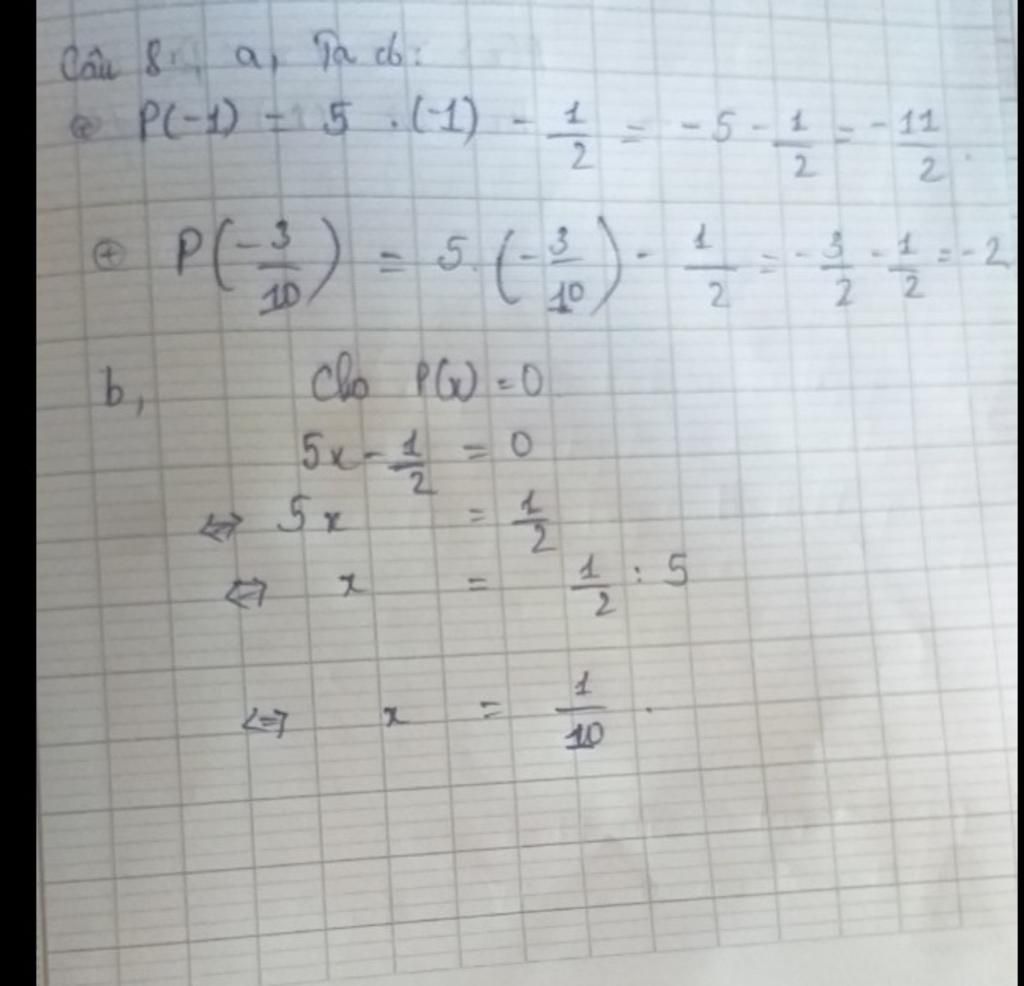 Câu 8: a, Ta có:
⊕ P(-1) = 5 . (-1) - 1/2 = -5 - 1/2 = -11/2.
⊕ P(-3/10) = 5.(-3/10) - 1/2 = -3/2 - 1/2 = -2
b, Cho P(x) = 0
5x - 1/2 = 0
⇔ 5x = 1/2
⇔ x = 1/2 : 5
⇔ x = 1/10.